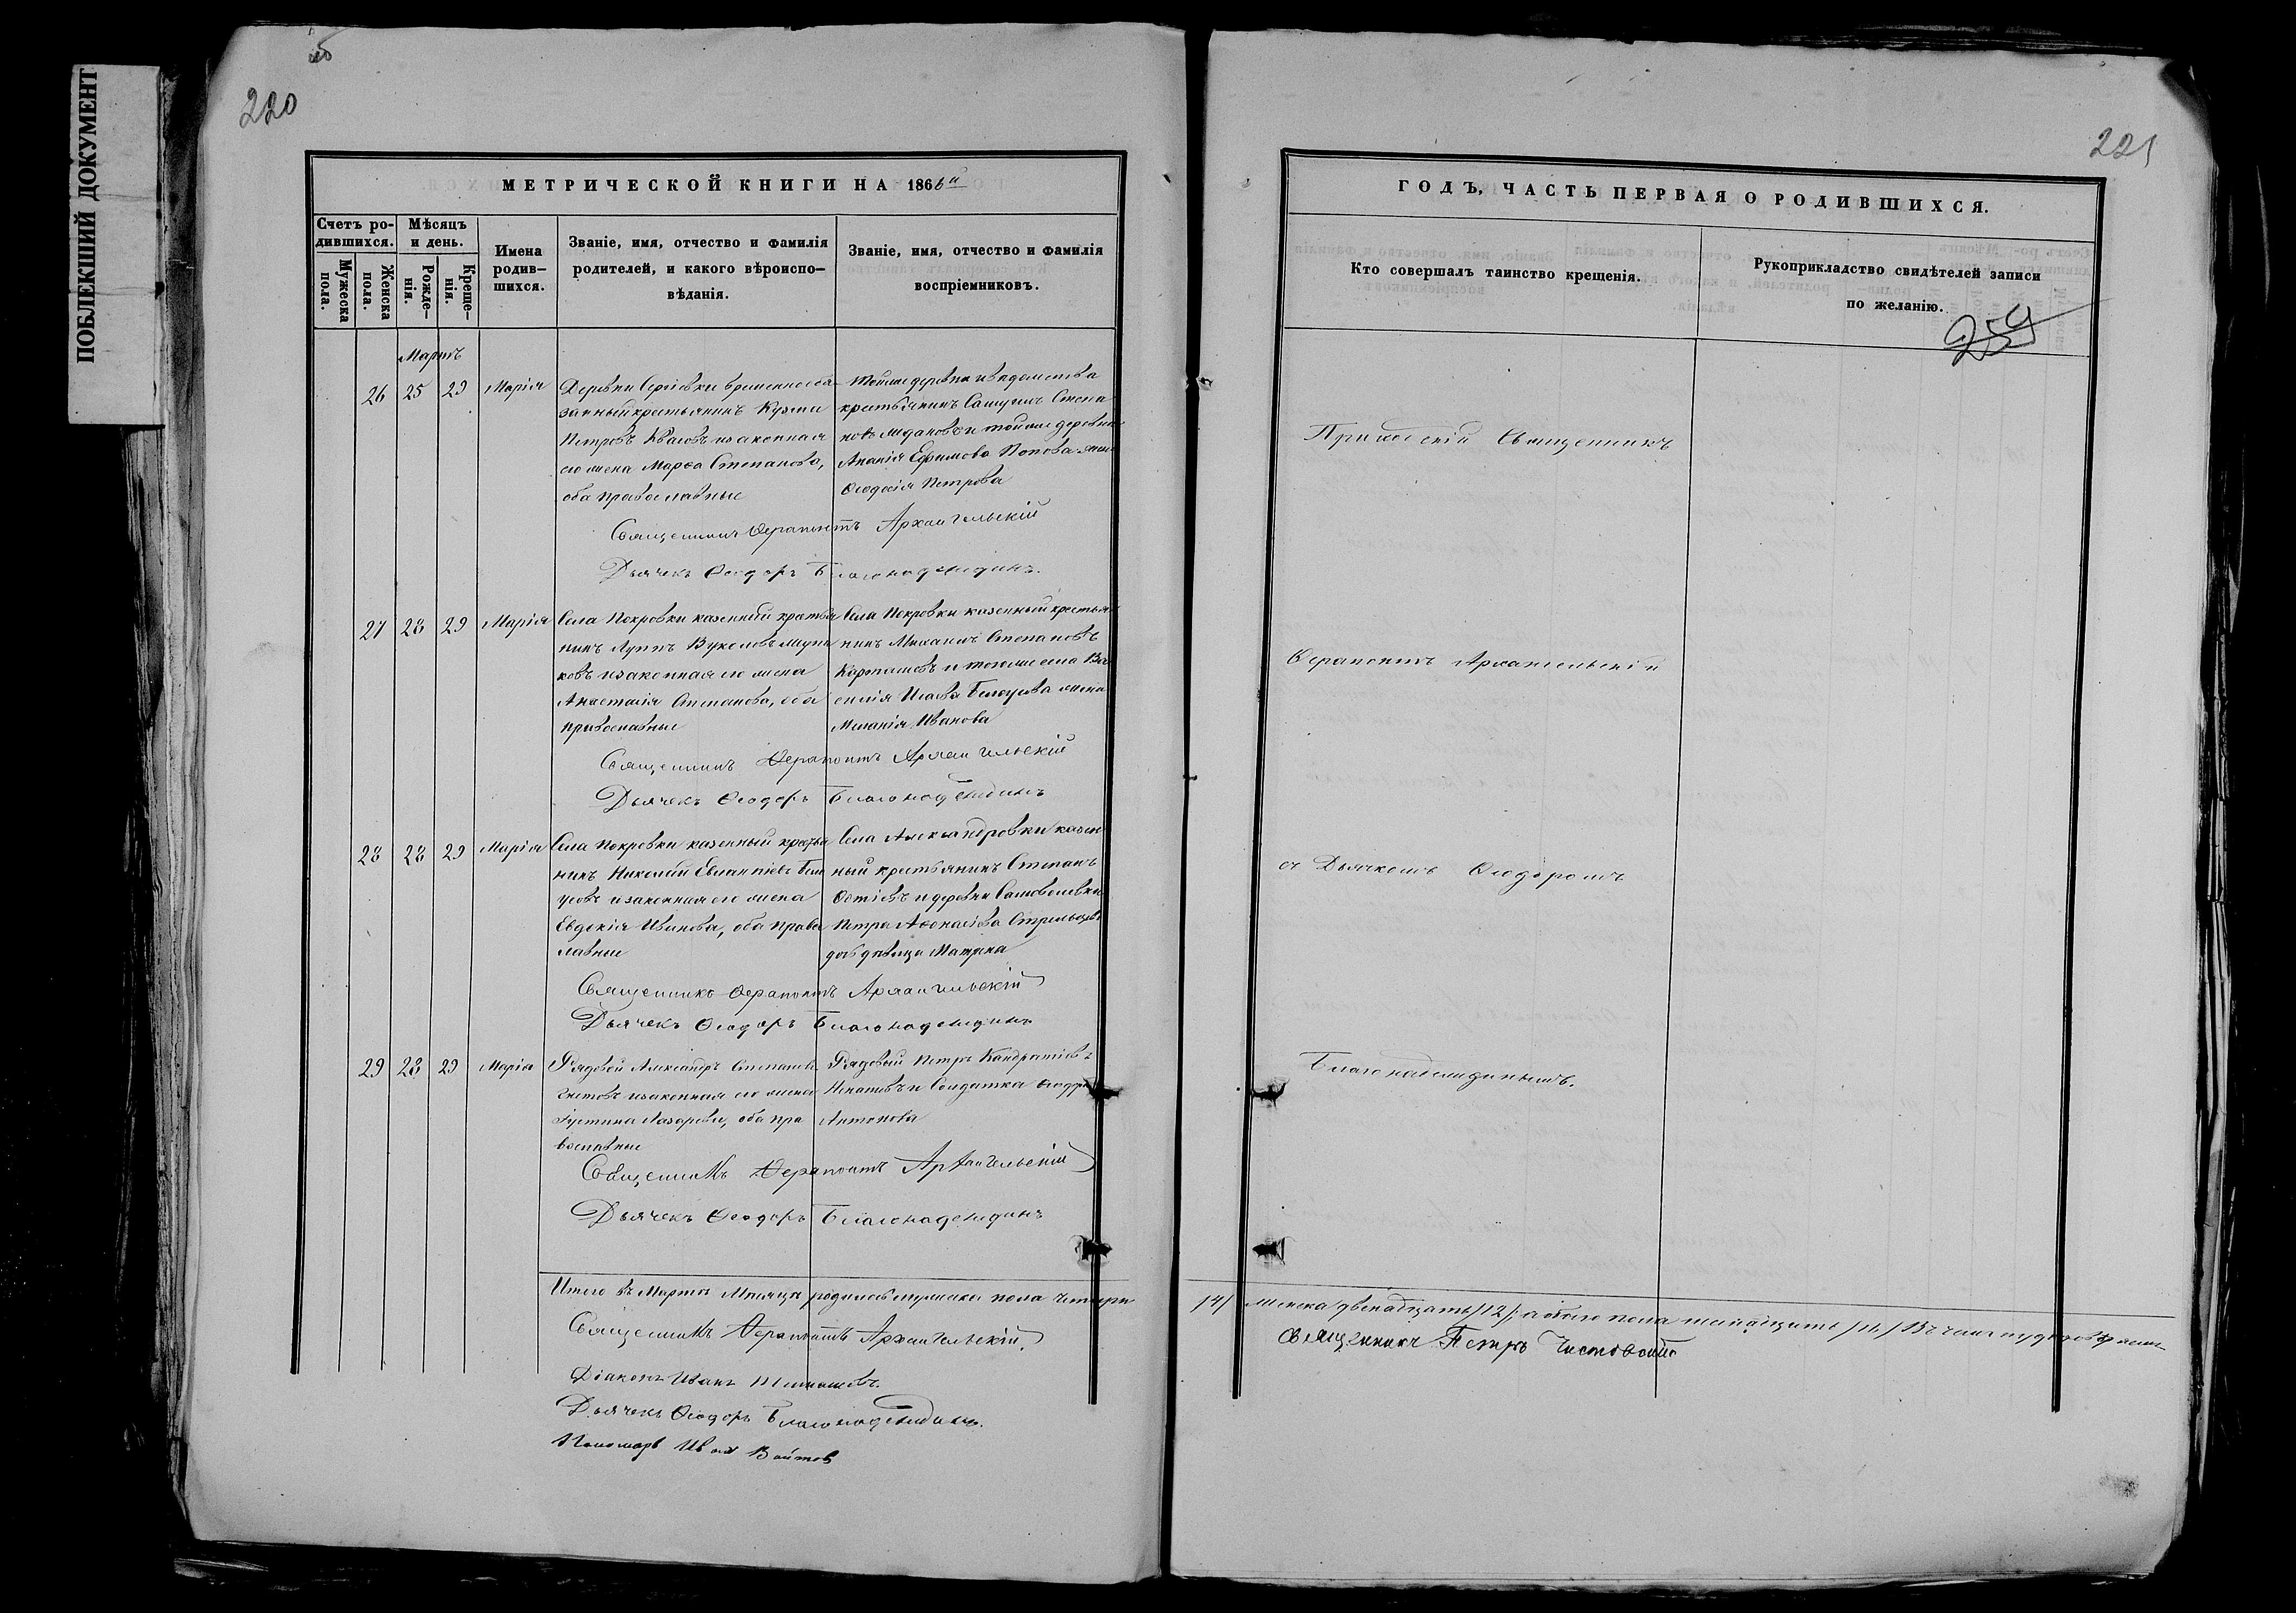 ПОБЛЕКШИЙ ДОКУМЕНТ
220
МЕТРИЧЕСКОЙ КНИГИ НА 1866й
Счетъ ро-
дившихся.
Мужеска
пола.
Женска
пола.
Мѣсяцъ
и день.
Рожде-
нія.
Креще-
нія.
Имена
родив-
шихся.
Званіе, имя, отчество и фамилія
родителей, и какого вѣроиспо-
вѣданія.
Званіе, имя, отчество и фамилія
воспріемниковъ.
Мартъ
26 25 29 Марія
Деревни Сергіевки временнообя
занный крестьянинъ Кузма
Петровъ и законная
его жена Марѳа Степанова,
оба православные
Тойже деревни и вѣдомства
крестьянинъ Самуилъ Степа
новъ и тойже деревни
Ананія Ефимова Попова жена
Ѳеодосія Петрова
Священникъ Ѳерапонтъ Архангельскій
Дьячекъ Ѳеодоръ Благонадеждинъ.
27 28 29 Марія
Села Покровки казенный крестья
нинъ Луппъ Вуколовъ
ковъ и законная его жена
Анастасія Степанова, оба
православные
Села Покровки казенный крестья
нинъ Михаилъ Степановъ
Карташовъ и тогоже села Ва
силія Исаева Белоусова жена
Меланія Иванова
Священникъ Ѳерапонтъ Архангельскій
Дьячекъ Ѳеодоръ Благонадеждинъ
28 28 29 Марія
Села Покровки казенный крестья
нинъ Николай Евлампіевъ Бело
усовъ и законная его жена
Евдокія Иванова, оба право
славные
Села Александровки казен
ный крестьянинъ Степанъ
и деревни Самоволевки
Петра Аѳонасіева Стрельцова
дочь дѣвица Матрона
Священникъ Ѳерапонтъ Архангельскій
Дьячекъ Ѳеодоръ Благонадеждинъ
29 28 29 Марія
Рядовой Александръ Степановъ
и законная его жена
Іустина Лазарева, оба пра
вославные
Рядовой Петръ Кондратіевъ
Игнатовъ и Солдатка
Антонова
Священникъ Ѳерапонтъ Архангельскій
Дьячекъ Ѳеодоръ Благонадеждинъ
Итого въ Мартѣ Мѣсяцѣ родилось мужеска пола четыре
Священникъ Ѳерапонтъ Архангельскій.
Діаконъ Иванъ
Дьячекъ Ѳеодоръ Благонадеждинъ.
Пономарь Иванъ Войтовъ
221
ГОДЪ, ЧАСТЬ ПЕРВАЯ О РОДИВШИХСЯ.
Кто совершалъ таинство крещенія.
Рукоприкладство свидѣтелей записи
по желанію.
259
Приходскій Священникъ
Ѳерапонтъ Архангельскій
съ Дьячкомъ Ѳеодоромъ
Благонадеждинымъ.
/4/ женска двенадцать /12/, а обоего пола шестнадцать /16/ Въ чемъ и
Священникъ Петръ